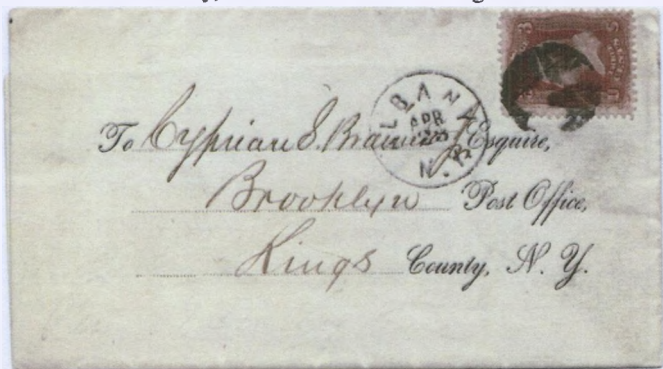 ALBANY
APR
N.Y.
To Cyprian S. Esquire,
Brooklyn Post Office,
Kings County, N. Y.